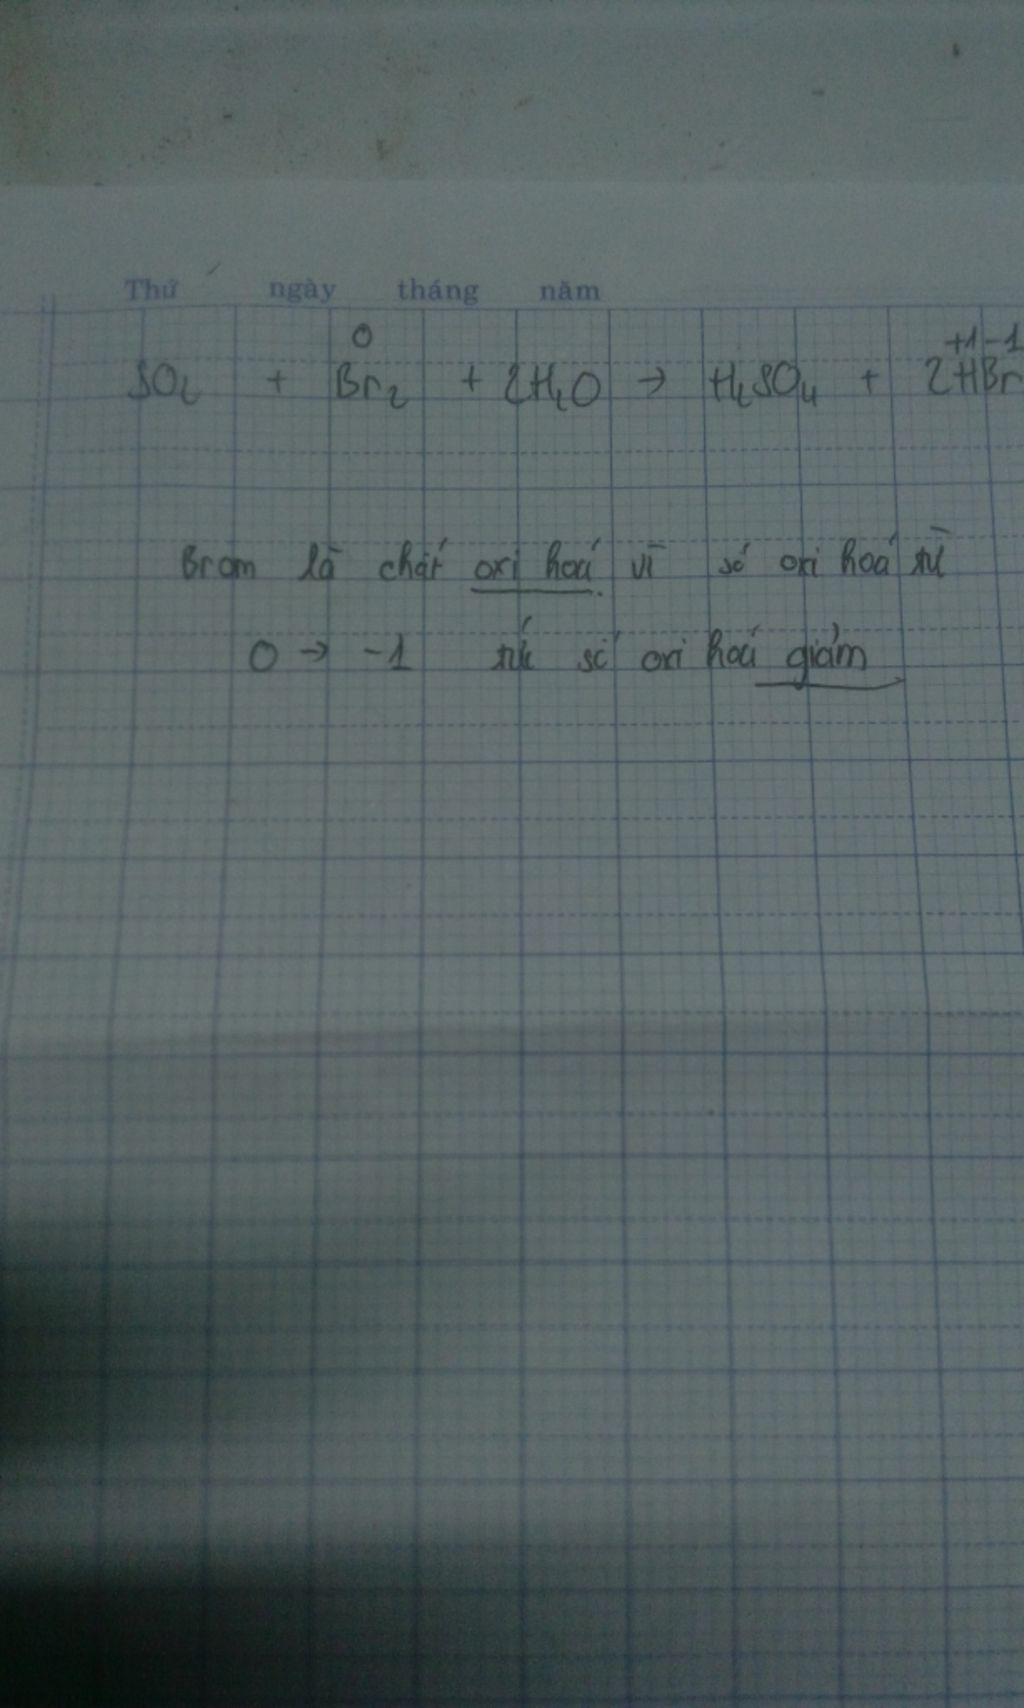 Thứ ngày tháng năm
0 +1 -1
SO2 + Br2 + 2H2O → H2SO4 + 2HBr
Brom là chất oxi hoá vì số oxi hoá từ
0 → -1 tức số oxi hoá giảm